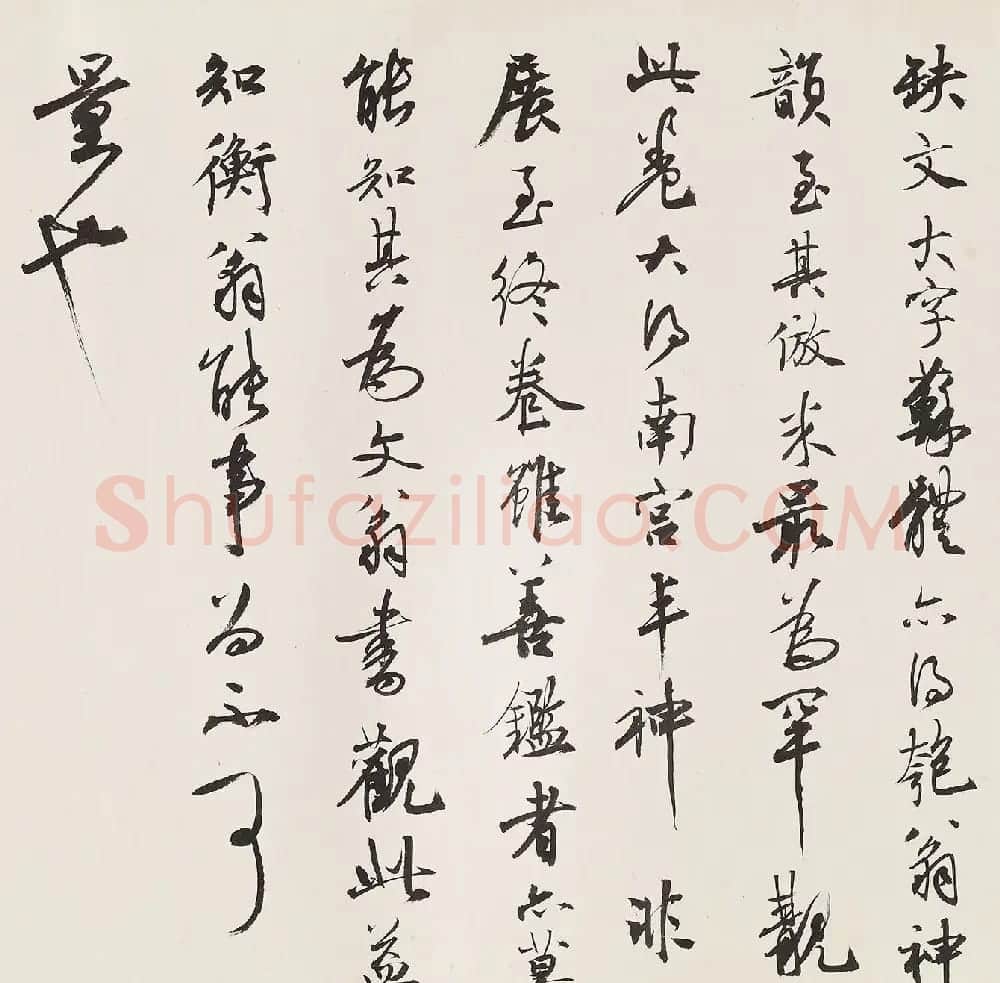 缺文大字蘇體亦得匏翁神
韻至其倣米最為罕覯
此卷大得南宮丰神非
展至終卷雖善鑑者亦莫
能知其為文翁書觀此益
知衡翁能事為不可
量也
Shufaziliao.COM